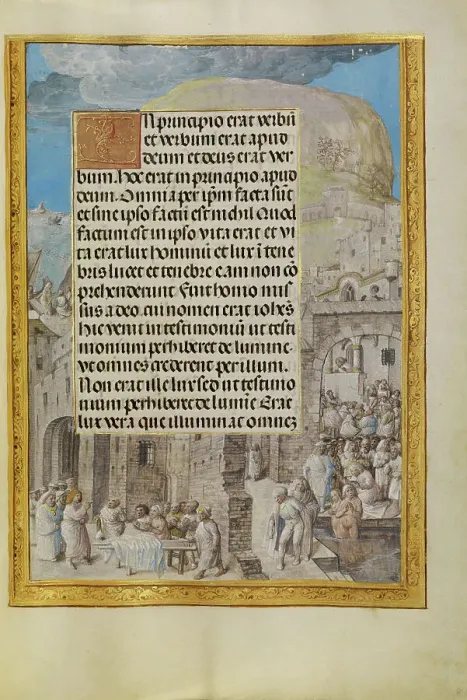 In principio erat verbū
et verbum erat apud
deum et deus erat ver
bum. Hoc erat in principio apud
deum. Omnia per ip̄m facta sūt
et sine ipso factū est nichil Quod
factum est in ipso vita erat et vi
ta erat lux hominū et lux ī tene
bris lucet et tenebre eam non cō
prehenderunt Fuit homo mis
sus a deo. cui nomen erat iohēs
hic venit in testimoniū ut testi
monium perhiberet de lumine.
vt omnes crederent per illum.
Non erat ille lux sed ut testimo
nium perhiberet de lumīe Erat
lux vera que illuminat omnem